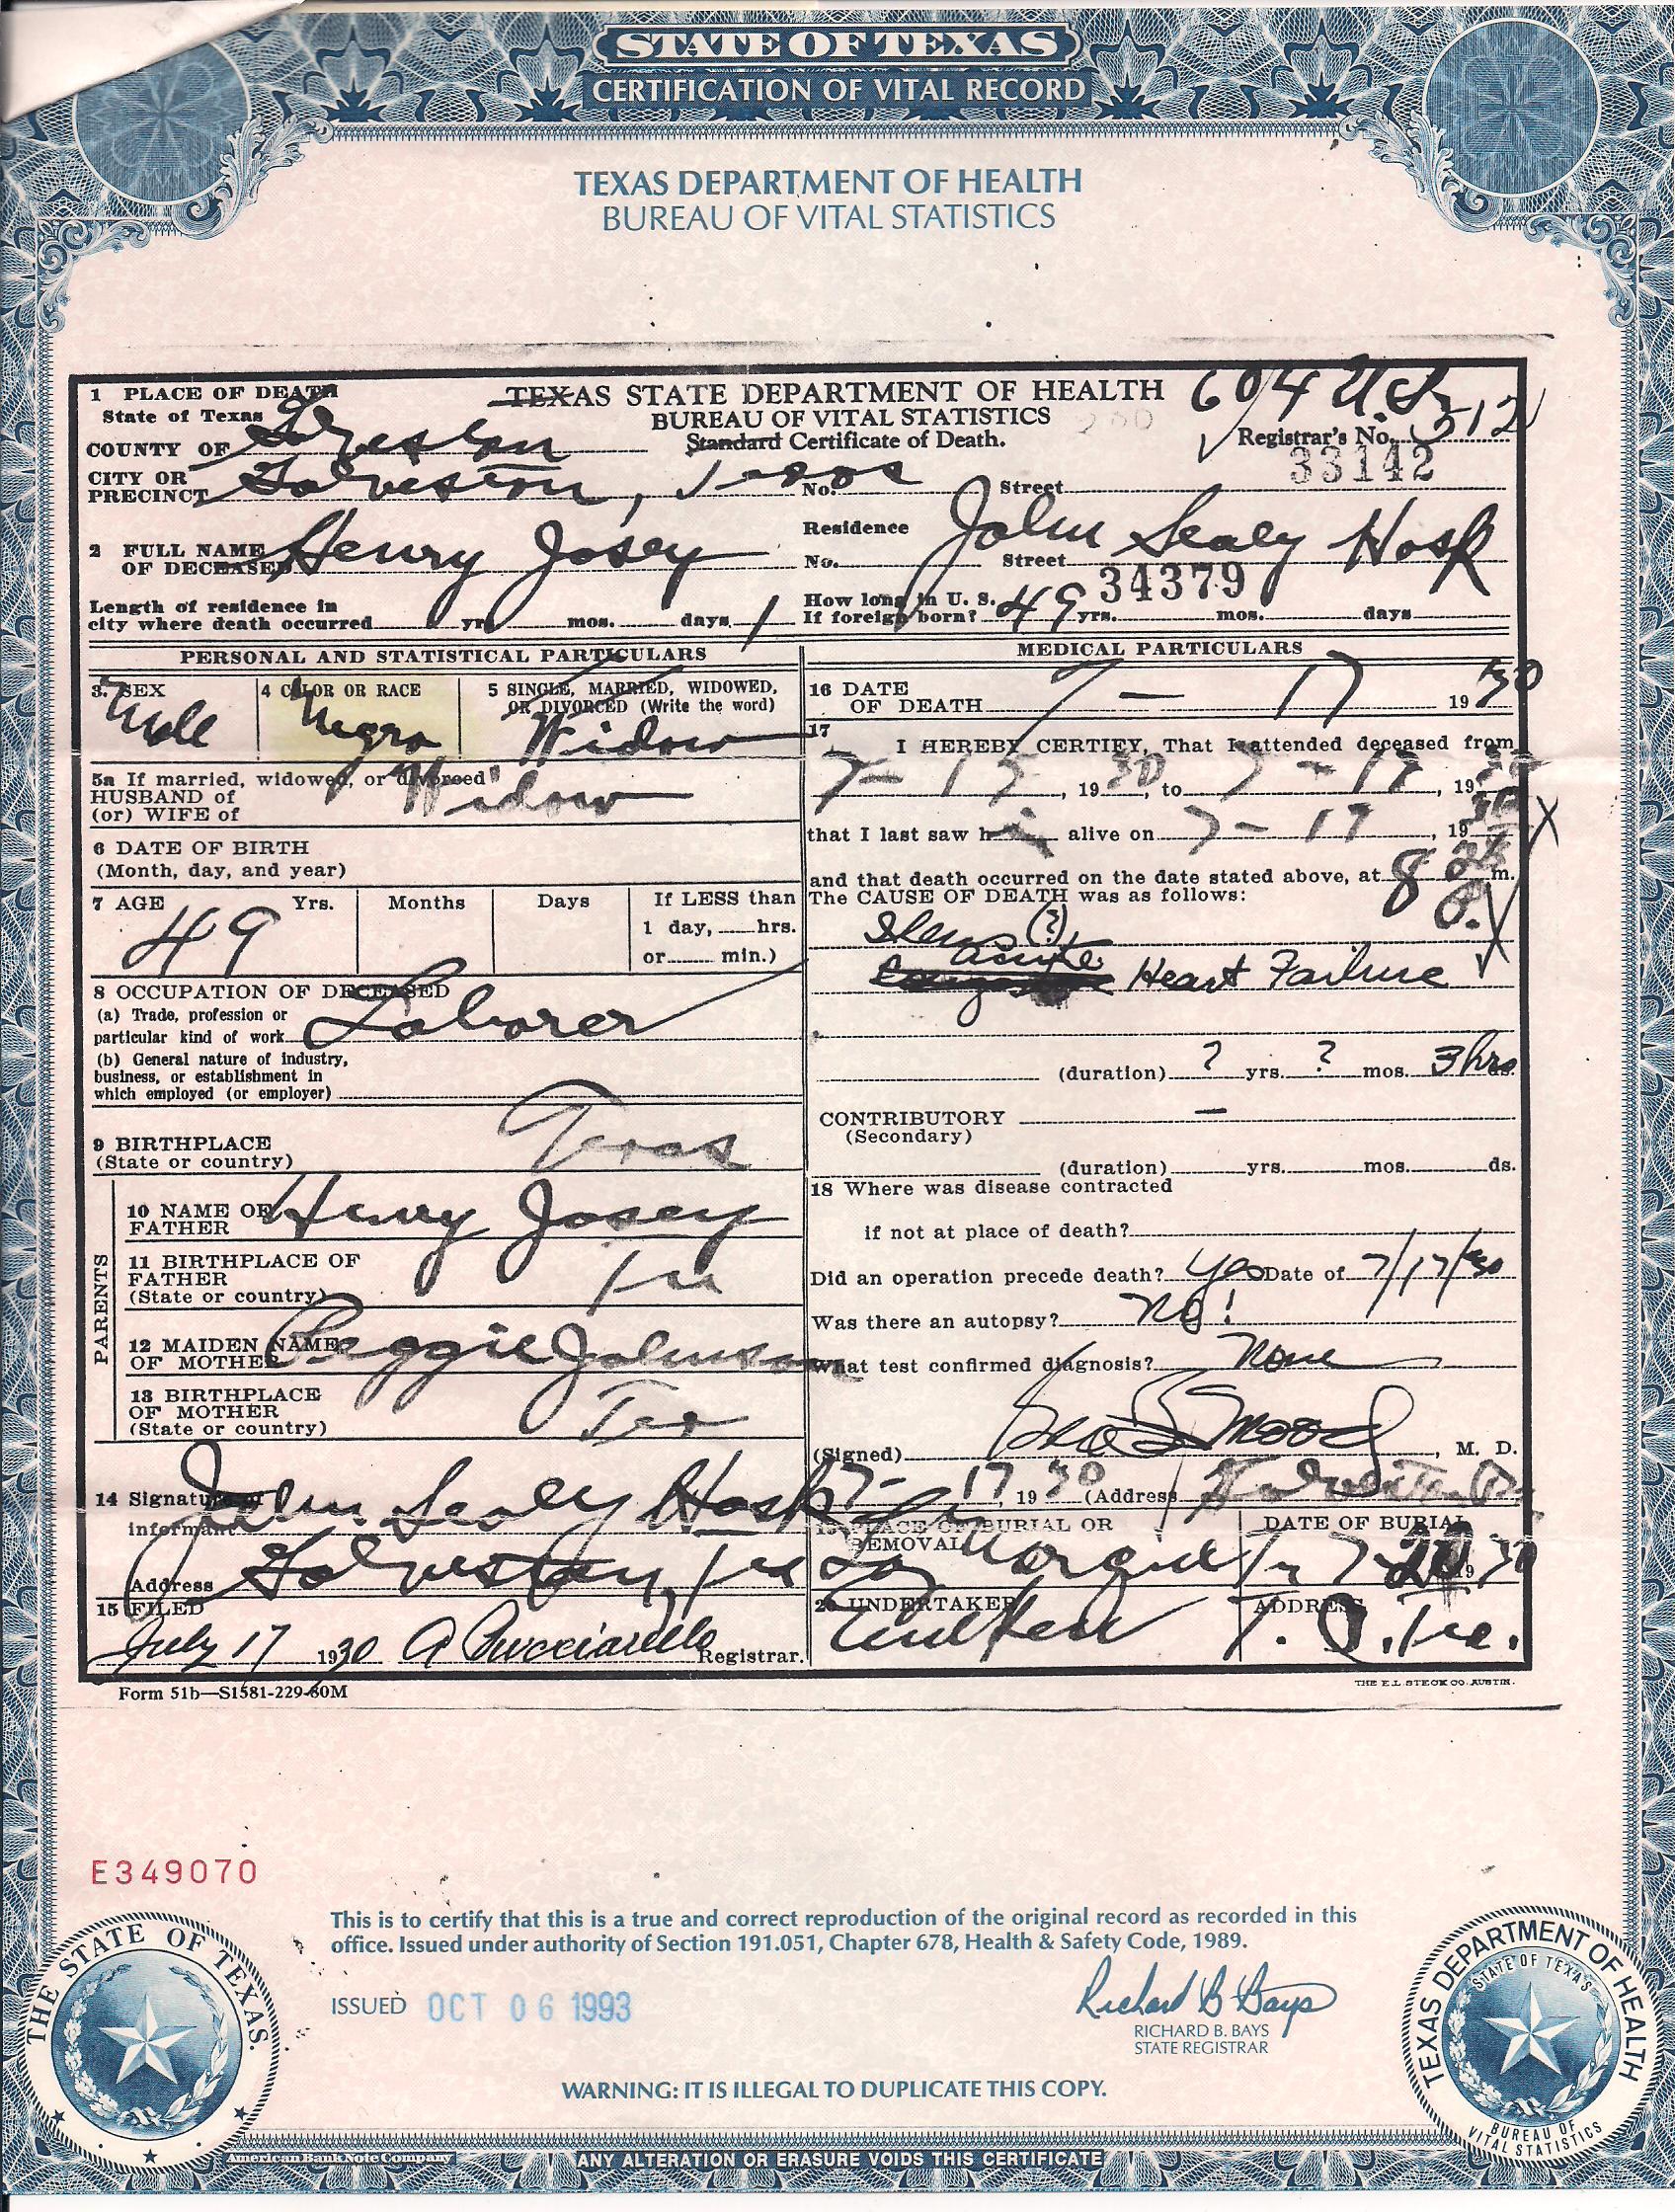 STATE OF TEXAS
CERTIFICATION OF VITAL RECORD
TEXAS DEPARTMENT OF HEALTH
BUREAU OF VITAL STATISTICS
1 PLACE OF DEATH
State of Texas
COUNTY OF Galveston
CITY OR PRECINCT Galveston, Texas
TEXAS STATE DEPARTMENT OF HEALTH
BUREAU OF VITAL STATISTICS
Standard Certificate of Death.
Registrar's No. 512
33142
No. Street
2 FULL NAME OF DECEASED Henry Josey
Residence No. Street John Sealy Hosp
34379
Length of residence in city where death occurred yrs. mos. days 1
How long in U. S. If foreign born? 49 yrs. mos. days
PERSONAL AND STATISTICAL PARTICULARS
3. SEX
Male
4 COLOR OR RACE
Negro
5 SINGLE, MARRIED, WIDOWED, OR DIVORCED (Write the word)
Widow
5a If married, widowed, or divorced
HUSBAND of
(or) WIFE of
Widow
6 DATE OF BIRTH
(Month, day, and year)
7 AGE Yrs. Months Days If LESS than
49
1 day, hrs.
or min.)
8 OCCUPATION OF DECEASED
(a) Trade, profession or
particular kind of work Laborer
(b) General nature of industry,
business, or establishment in
which employed (or employer)
9 BIRTHPLACE
(State or country)
Texas
PARENTS
10 NAME OF FATHER Henry Josey
11 BIRTHPLACE OF FATHER
(State or country)
Tex
12 MAIDEN NAME OF MOTHER Peggie Johnson
13 BIRTHPLACE OF MOTHER
(State or country)
Tex
14 Signature of informant John Sealy Hosp
Address Galveston, Tex
15 FILED
July 17 1930 A Pucciarello Registrar.
MEDICAL PARTICULARS
16 DATE OF DEATH 7 - 17 1930
17
I HEREBY CERTIFY, That I attended deceased from
7-15, 1930, to 7-17, 1930
that I last saw h alive on 7-17, 1930
and that death occurred on the date stated above, at 8 m.
The CAUSE OF DEATH was as follows:
(?)
acute
Heart Failure
(duration) ? yrs. ? mos. 3 hrs ds.
CONTRIBUTORY —
(Secondary)
(duration) yrs. mos. ds.
18 Where was disease contracted
if not at place of death?
Did an operation precede death? yes Date of 7/17/30
Was there an autopsy? No!
What test confirmed diagnosis? None
(Signed) , M. D.
7-17 1930 (Address Galveston
19 PLACE OF BURIAL OR REMOVAL
La Marque Tex
DATE OF BURIAL
7-20 1930
20 UNDERTAKER
ADDRESS
Form 51b—S1581-229-80M
THE E.L. STECK CO. AUSTIN.
E349070
This is to certify that this is a true and correct reproduction of the original record as recorded in this
office. Issued under authority of Section 191.051, Chapter 678, Health & Safety Code, 1989.
ISSUED OCT 06 1993
Richard B Bays
RICHARD B. BAYS
STATE REGISTRAR
WARNING: IT IS ILLEGAL TO DUPLICATE THIS COPY.
THE STATE OF TEXAS
TEXAS DEPARTMENT OF HEALTH
STATE OF TEXAS
BUREAU OF VITAL STATISTICS
American Bank Note Company
ANY ALTERATION OR ERASURE VOIDS THIS CERTIFICATE